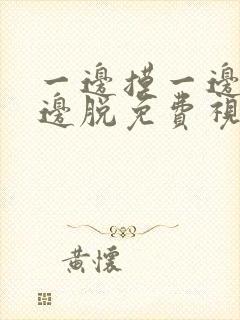 一邊摸一邊
邊脫免費視
黃懷